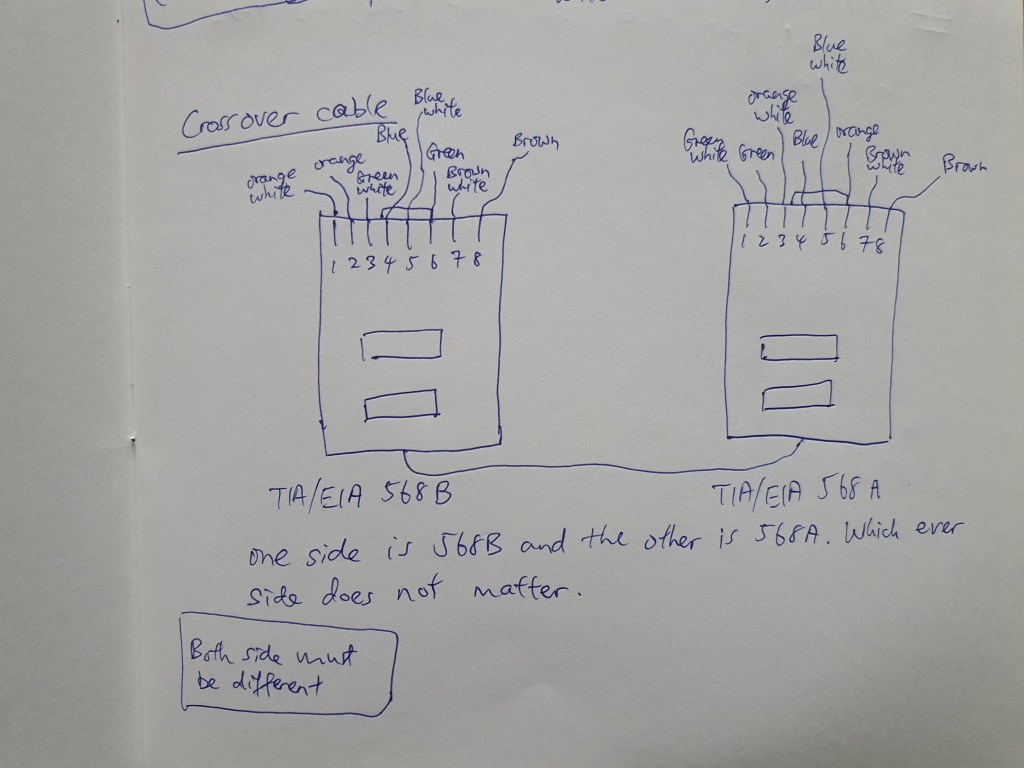 Crossover cable
orange
white
orange
Green
white
Blue
Blue
white
Green
Brown
white
Brown
1 2 3 4 5 6 7 8
TIA/EIA 568B
Green
white
Green
orange
white
Blue
Blue
white
orange
Brown
white
Brown
1 2 3 4 5 6 7 8
TIA/EIA 568A
one side is 568B and the other is 568A. Which ever
side does not matter.
Both side must
be different